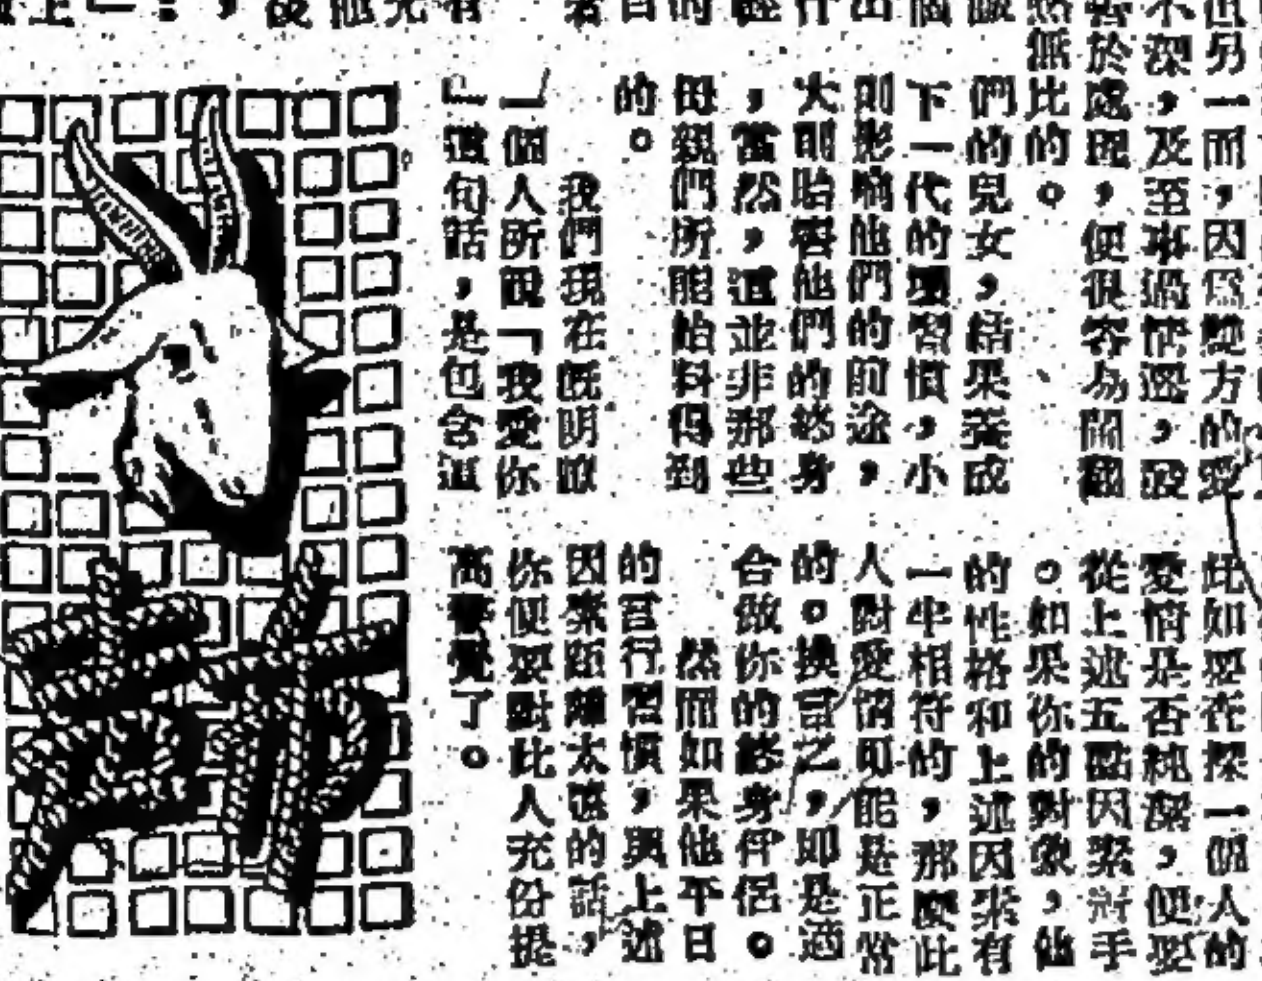 另一面，因為雙方的愛
不深，及至事過情遷，
於處理，便很容易鬧翻
無比的。
們的兒女，結果養成
下一代的壞習慣，小
則影响他們的前途，
大則貽害他們的終身
，當然，這並非那些
母親們所能始料得到
的。
我們現在既明瞭
一個人所說「我愛你
』這句話，是包含這
此如要在探一個人的
愛情是否純潔，便要
從上述五點因素着手
。如果你的對象，他
的性格和上述因素有
一半相符的，那麼此
人對愛情可能是正常
的。換言之，即是適
合做你的終身伴侶。
然而如果他平日
的言行習慣，與上述
因素距離太遠的話，
你便要對此人充份提
高警覺了。